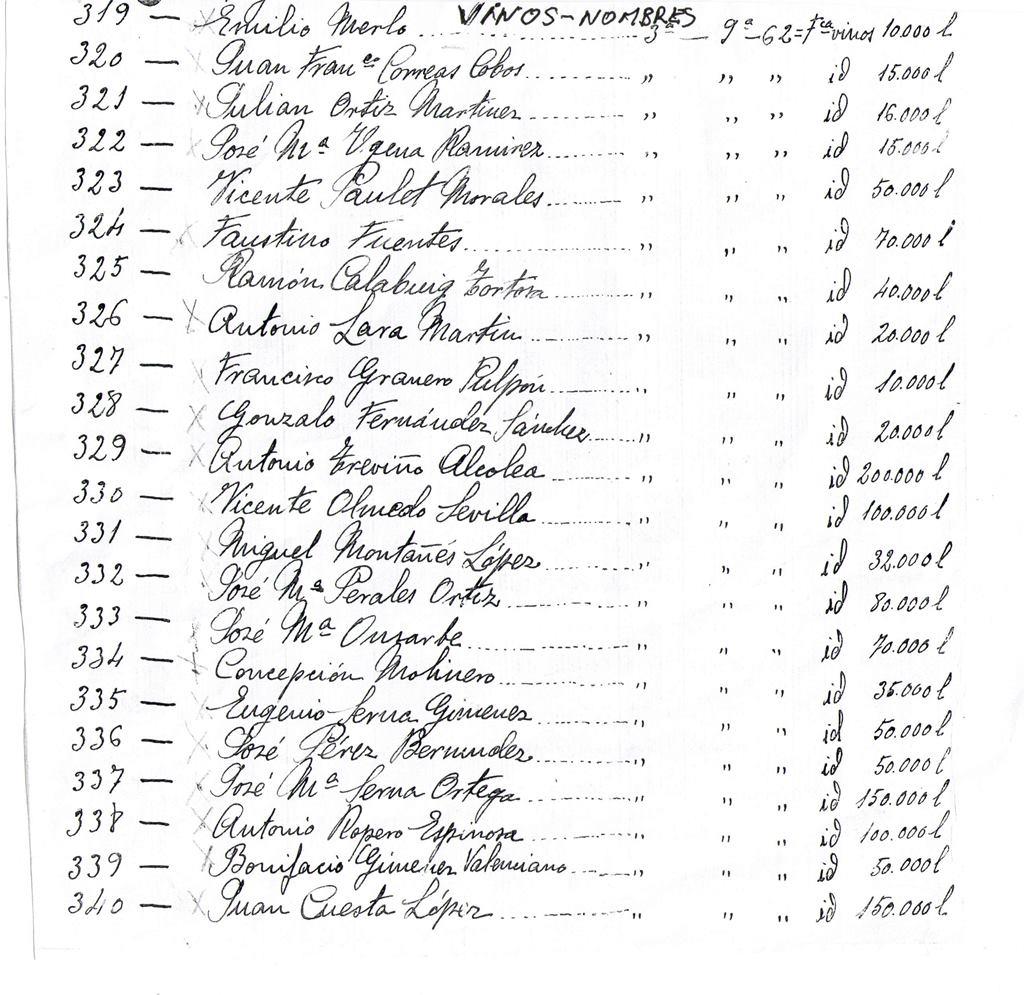 VINOS-NOMBRES
319 — Emilio Merlo ........ 3ª — 9ª-62=Fca vinos 10.000 l
320 — Juan Franco Correas Cobos........ " " " id 15.000 l
321 — Julian Ortiz Martinez........ " " " id 16.000 l
322 — José Mª Ygena Ramirez........ " " " id 15.000 l
323 — Vicente Paulet Morales........ " " " id 50.000 l
324 — Faustino Fuentes........ " " " id 70.000 l
325 — Ramón Calabuig Tortosa........ " " " id 40.000 l
326 — Antonio Lara Martin........ " " " id 20.000 l
327 — Francisco Granero Pulpón........ " " " id 10.000 l
328 — Gonzalo Fernández Sánchez........ " " " id 20.000 l
329 — Antonio Treviño Alcolea........ " " " id 200.000 l
330 — Vicente Olmedo Sevilla........ " " " id 100.000 l
331 — Miguel Montañés López........ " " " id 32.000 l
332 — José Mª Perales Ortiz........ " " " id 80.000 l
333 — José Mª ........ " " " id 70.000 l
334 — Concepción Molinero........ " " " id 35.000 l
335 — Eugenio Serna Gimenez........ " " " id 50.000 l
336 — José Pérez Bermudez........ " " " id 50.000 l
337 — José Mª Serna Ortega........ " " " id 150.000 l
338 — Antonio Ropero Espinosa........ " " " id 100.000 l
339 — Bonifacio Gimenez Valenciano........ " " " id 50.000 l
340 — Juan Cuesta López........ " " " id 150.000 l